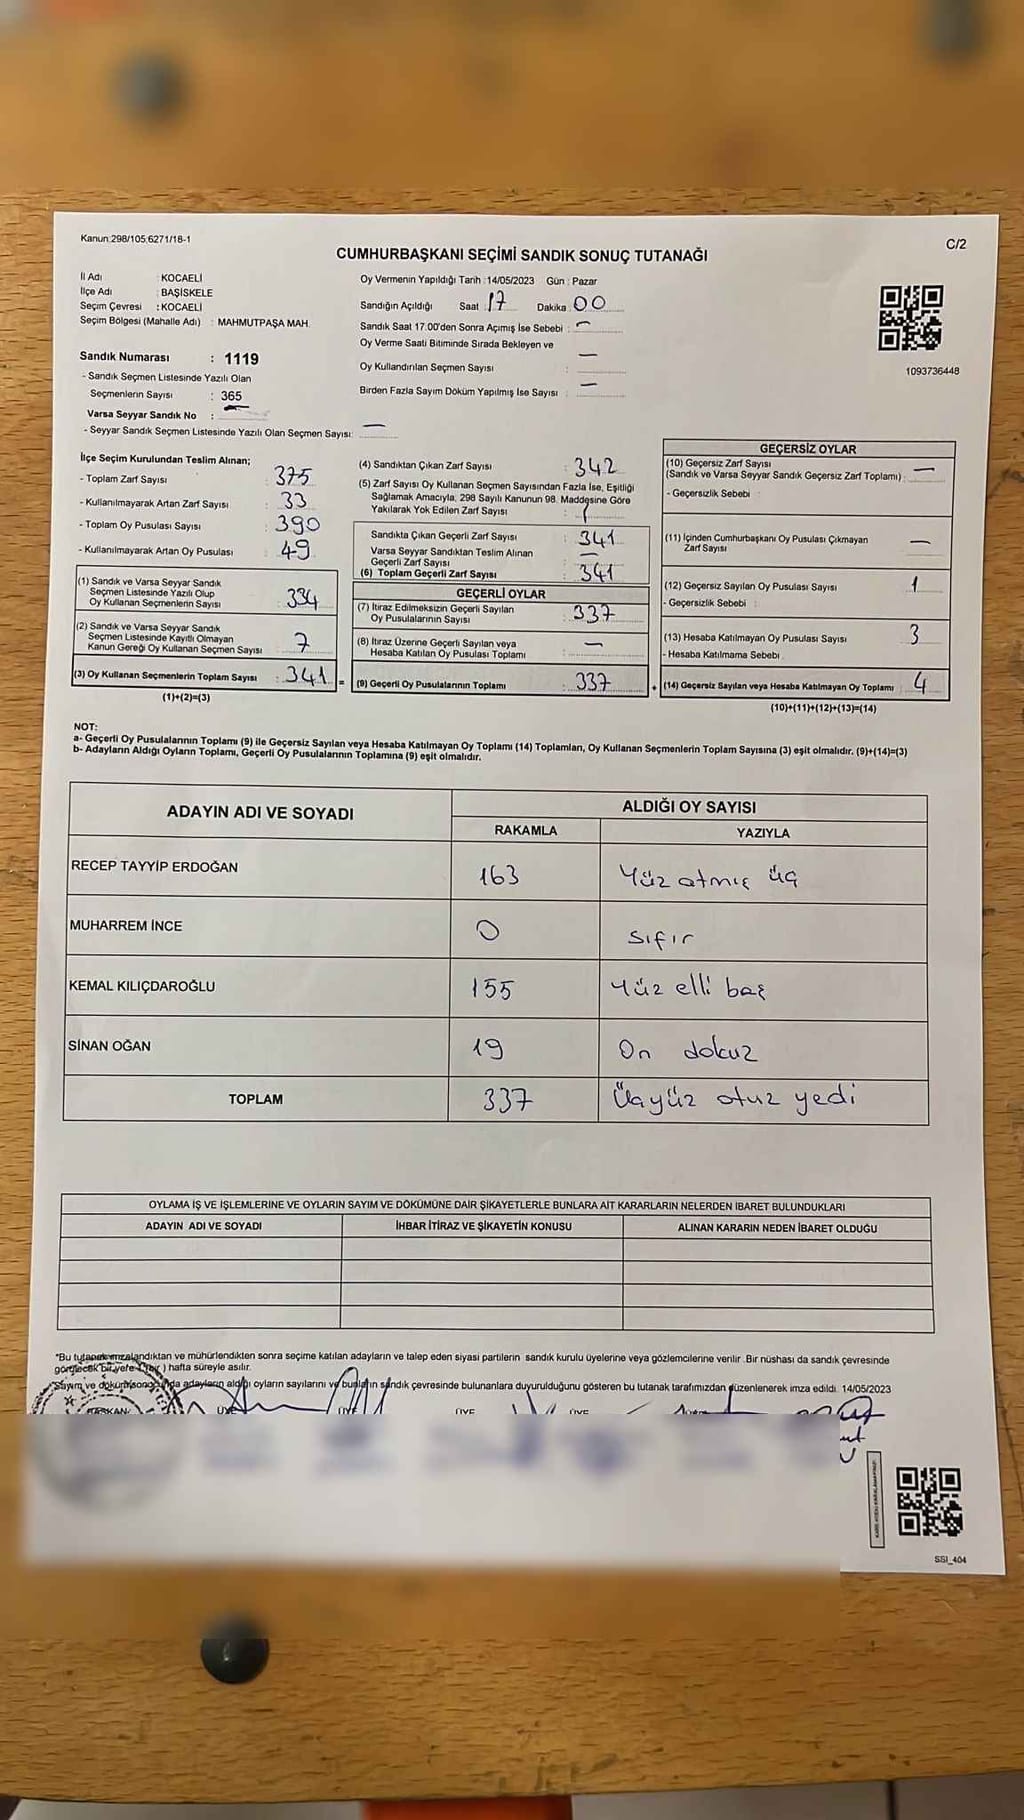 Kanun:298/105;6271/18-1
C/2
CUMHURBAŞKANI SEÇİMİ SANDIK SONUÇ TUTANAĞI
İl Adı : KOCAELİ
İlçe Adı : BAŞİSKELE
Seçim Çevresi : KOCAELİ
Seçim Bölgesi (Mahalle Adı) : MAHMUTPAŞA MAH.
Sandık Numarası : 1119
- Sandık Seçmen Listesinde Yazılı Olan
Seçmenlerin Sayısı : 365
Varsa Seyyar Sandık No : —
- Seyyar Sandık Seçmen Listesinde Yazılı Olan Seçmen Sayısı: —
Oy Vermenin Yapıldığı Tarih :14/05/2023 Gün : Pazar
Sandığın Açıldığı Saat 17 Dakika 00
Sandık Saat 17.00'den Sonra Açımış İse Sebebi : —
Oy Verme Saati Bitiminde Sırada Bekleyen ve
Oy Kullandırılan Seçmen Sayısı : —
Birden Fazla Sayım Döküm Yapılmış İse Sayısı : —
1093736448
İlçe Seçim Kurulundan Teslim Alınan;
- Toplam Zarf Sayısı : 375
- Kullanılmayarak Artan Zarf Sayısı : 33
- Toplam Oy Pusulası Sayısı : 390
- Kullanılmayarak Artan Oy Pusulası : 49
(1) Sandık ve Varsa Seyyar Sandık
Seçmen Listesinde Yazılı Olup
Oy Kullanan Seçmenlerin Sayısı : 334
(2) Sandık ve Varsa Seyyar Sandık
Seçmen Listesinde Kayıtlı Olmayan
Kanun Gereği Oy Kullanan Seçmen Sayısı : 7
(3) Oy Kullanan Seçmenlerin Toplam Sayısı : 341 =
(1)+(2)=(3)
(4) Sandıktan Çıkan Zarf Sayısı : 342
(5) Zarf Sayısı Oy Kullanan Seçmen Sayısından Fazla İse, Eşitliği
Sağlamak Amacıyla, 298 Sayılı Kanunun 98. Maddesine Göre
Yakılarak Yok Edilen Zarf Sayısı : 1
Sandıkta Çıkan Geçerli Zarf Sayısı : 341
Varsa Seyyar Sandıktan Teslim Alınan
Geçerli Zarf Sayısı : —
(6) Toplam Geçerli Zarf Sayısı : 341
GEÇERLİ OYLAR
(7) İtiraz Edilmeksizin Geçerli Sayılan
Oy Pusulalarının Sayısı : 337
(8) İtiraz Üzerine Geçerli Sayılan veya
Hesaba Katılan Oy Pusulası Toplamı : —
(9) Geçerli Oy Pusulalarının Toplamı : 337 +
GEÇERSİZ OYLAR
(10) Geçersiz Zarf Sayısı
(Sandık ve Varsa Seyyar Sandık Geçersiz Zarf Toplamı) : —
- Geçersizlik Sebebi :
(11) İçinden Cumhurbaşkanı Oy Pusulası Çıkmayan
Zarf Sayısı —
(12) Geçersiz Sayılan Oy Pusulası Sayısı 1
- Geçersizlik Sebebi :
(13) Hesaba Katılmayan Oy Pusulası Sayısı 3
- Hesaba Katılmama Sebebi
(14) Geçersiz Sayılan veya Hesaba Katılmayan Oy Toplamı 4
(10)+(11)+(12)+(13)=(14)
NOT:
a- Geçerli Oy Pusulalarının Toplamı (9) ile Geçersiz Sayılan veya Hesaba Katılmayan Oy Toplamı (14) Toplamları, Oy Kullanan Seçmenlerin Toplam Sayısına (3) eşit olmalıdır. (9)+(14)=(3)
b- Adayların Aldığı Oyların Toplamı, Geçerli Oy Pusulalarının Toplamına (9) eşit olmalıdır.
ADAYIN ADI VE SOYADI ALDIĞI OY SAYISI
RAKAMLA YAZIYLA
RECEP TAYYİP ERDOĞAN 163 Yüz atmış üç
MUHARREM İNCE 0 sıfır
KEMAL KILIÇDAROĞLU 155 Yüz elli beş
SİNAN OĞAN 19 On dokuz
TOPLAM 337 Üçyüz otuz yedi
OYLAMA İŞ VE İŞLEMLERİNE VE OYLARIN SAYIM VE DÖKÜMÜNE DAİR ŞİKAYETLERLE BUNLARA AİT KARARLARIN NELERDEN İBARET BULUNDUKLARI
ADAYIN ADI VE SOYADI İHBAR İTİRAZ VE ŞİKAYETİN KONUSU ALINAN KARARIN NEDEN İBARET OLDUĞU
"Bu tutanak imzalandıktan ve mühürlendikten sonra seçime katılan adayların ve talep eden siyasi partilerin sandık kurulu üyelerine veya gözlemcilerine verilir .Bir nüshası da sandık çevresinde
görülecek bir yere 1 (bir) hafta süreyle asılır.
Sayım ve döküm sonucunda adayların aldığı oyların sayılarını ve bunların sandık çevresinde bulunanlara duyurulduğunu gösteren bu tutanak tarafımızdan düzenlenerek imza edildi. 14/05/2023
BAŞKAN ÜYE ÜYE ÜYE ÜYE
SSI_404